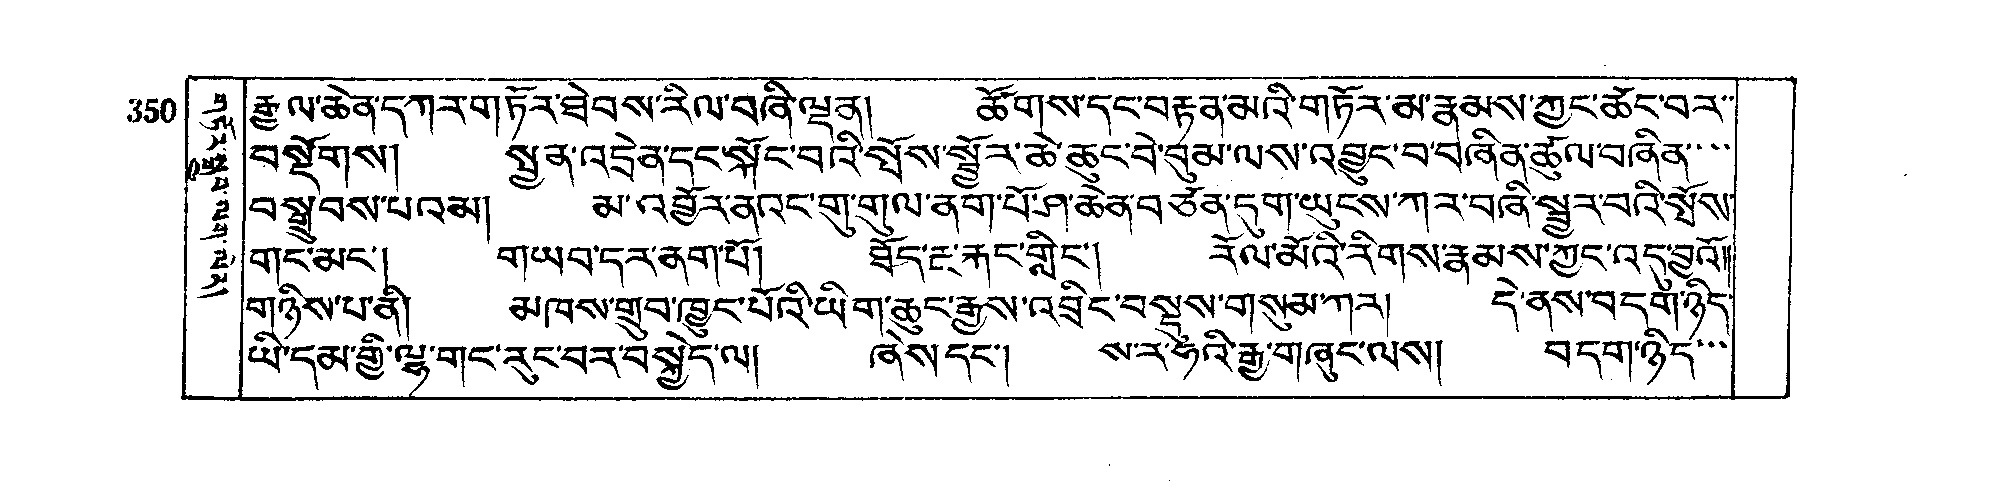 350
གཏོར་སྒྲུབ་ལག་ལེན།
རྒྱ་ལ་ཆེན་དཀར་གཏོར་ཐེབས་རིལ་བཞི་ལྡན། ཚོགས་དང་བརྟན་མའི་གཏོར་མ་རྣམས་ཀྱང་ཚོང་བར་
བསྔོགས། སྤྱན་འདྲེན་དང་སྐོང་བའི་སྤོས་སྦྱོར་ཚེ་ཆུང་བེ་བུམ་ལས་འབྱུང་བ་བཞིན་ཚུལ་བཞིན་
བསྒྲུབས་པའམ། མ་འབྱོར་ནའང་གུ་གུལ་ནག་པོ་ཤ་ཆེན་བཙོན་དུག་ཡུངས་ཀར་བཞི་སྦྱར་བའི་སྤོས་
གང་མང་། གཡབ་དར་ནག་པོ། ཐོད་རྔ་རྐང་གླིང་། རོལ་མོའི་རིགས་རྣམས་ཀྱང་འདུ་བྱའོ༎
གཉིས་པ་ནི། མཁས་གྲུབ་ཁྱུང་པོའི་ཡིག་ཆུང་རྒྱས་འབྲིང་བསྡུས་གསུམ་ཀར། དེ་ནས་བདག་ཉིད་
ཡི་དམ་གྱི་ལྷ་གང་རུང་བར་བསྐྱེད་ལ། ཞེས་དང་། ས་ར་ཧའི་རྒྱ་གཞུང་ལས། བདག་ཉིད་